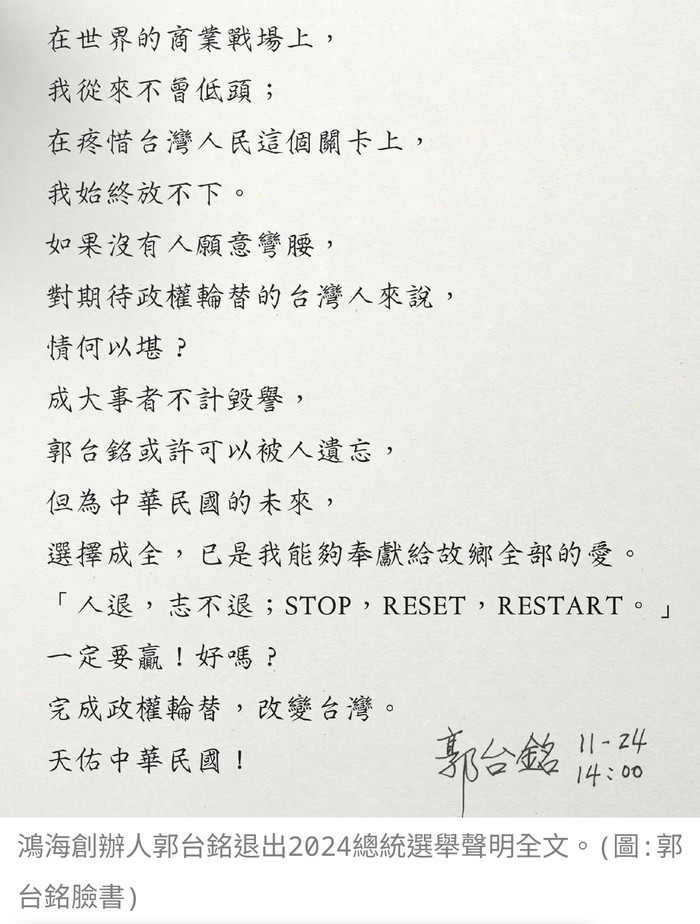 在世界的商業戰場上，
我從來不曾低頭；
在疼惜台灣人民這個關卡上，
我始終放不下。
如果沒有人願意彎腰，
對期待政權輪替的台灣人來說，
情何以堪？
成大事者不計毀譽，
郭台銘或許可以被人遺忘，
但為中華民國的未來，
選擇成全，已是我能夠奉獻給故鄉全部的愛。
「人退，志不退；STOP，RESET，RESTART。」
一定要贏！好嗎？
完成政權輪替，改變台灣。
天佑中華民國！
郭台銘 11-24
14:00
鴻海創辦人郭台銘退出2024總統選舉聲明全文。(圖:郭
台銘臉書)